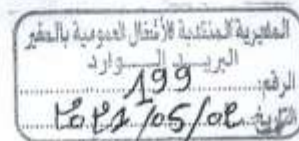 المديرية المنتدبة للأشغال العمومية بالمغير
البريد الوارد
الرقم: 199
التاريخ 2021/05/02